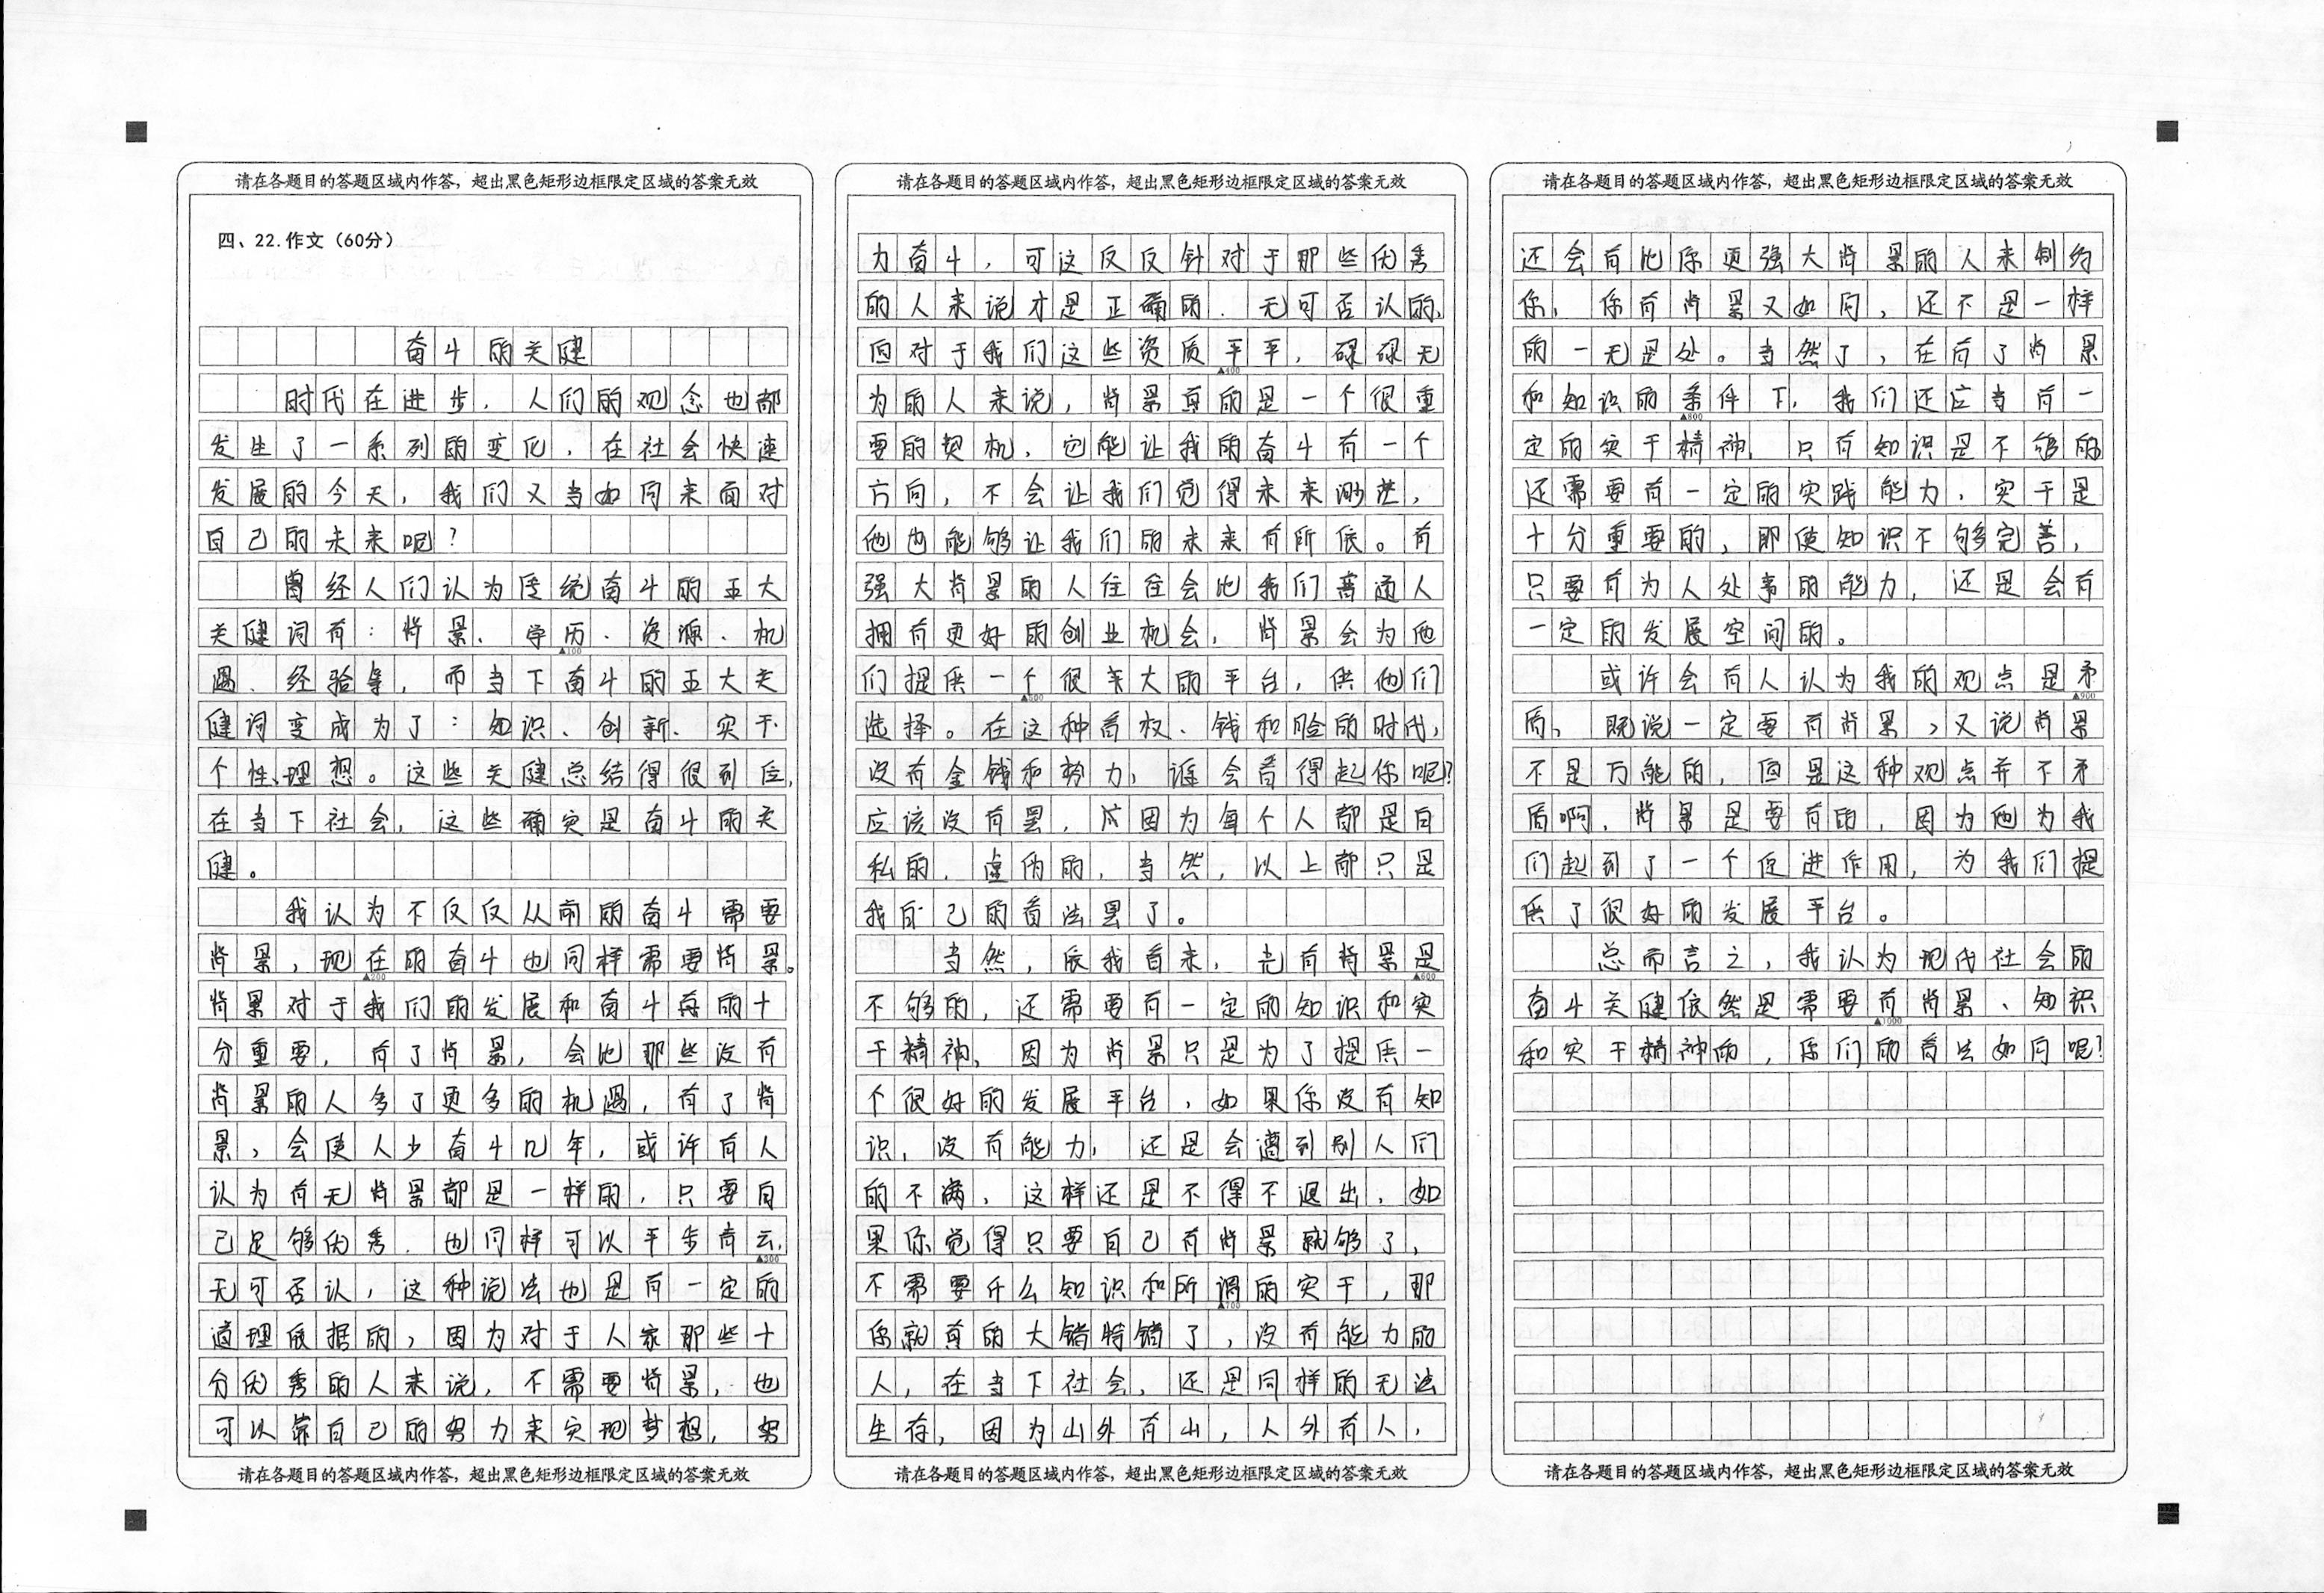 请在各题目的答题区域内作答，超出黑色矩形边框限定区域的答案无效
四、22.作文（60分）
奋斗的关健
时代在进步，人们的观念也都
发生了一系列的变化，在社会快速
发展的今天，我们又当如何来面对
自己的未来呢？
曾经人们认为传统奋斗的五大
关健词有：背景、学历、资源、机
▲100
遇、经验等，而当下奋斗的五大关
健词变成为了：知识、创新、实干、
个性、理想。这些关健总结得很到位，
在当下社会，这些确实是奋斗的关
健。
我认为不仅仅从前的奋斗需要
背景，现在的奋斗也同样需要背景。
▲200
背景对于我们的发展和奋斗真的十
分重要，有了背景，会比那些没有
背景的人多了更多的机遇，有了背
景，会使人少奋斗几年，或许有人
认为有无背景都是一样的，只要自
己足够优秀，也同样可以平步青云，
▲300
无可否认，这种说法也是有一定的
道理依据的，因为对于人家那些十
分优秀的人来说，不需要背景，也
可以靠自己的努力来实现梦想，努
请在各题目的答题区域内作答，超出黑色矩形边框限定区域的答案无效
请在各题目的答题区域内作答，超出黑色矩形边框限定区域的答案无效
力奋斗，可这仅仅针对于那些优秀
的人来说才是正确的．无可否认的，
但对于我们这些资质平平，碌碌无
▲400
为的人来说，背景真的是一个很重
要的契机，它能让我的奋斗有一个
方向，不会让我们觉得未来渺茫，
他也能够让我们的未来有所依。有
强大背景的人往往会比我们普通人
拥有更好的创业机会，背景会为他
们提供一个很大的平台，供他们
▲500
选择。在这种看权、钱和脸的时代，
没有金钱和势力，谁会看得起你呢？
应该没有罢，因为每个人都是自
私的，虚伪的，当然，以上都只是
我自己的看法罢了。
当然，依我看来，光有背景是
▲600
不够的，还需要有一定的知识和实
干精神，因为背景只是为了提供一
个很好的发展平台，如果你没有知
识，没有能力，还是会遭到别人们
的不满，这样还是不得不退出，如
果你觉得只要自己有背景就够了，
不需要什么知识和所谓的实干，那
▲700
你就真的大错特错了，没有能力的
人，在当下社会，还是同样的无法
生存，因为山外有山，人外有人，
请在各题目的答题区域内作答，超出黑色矩形边框限定区域的答案无效
请在各题目的答题区域内作答，超出黑色矩形边框限定区域的答案无效
还会有比你更强大背景的人来制约
你，你有背景又如何，还不是一样
的一无是处。当然了，在有了背景
和知识的条件下，我们还应当有一
▲800
定的实干精神，只有知识是不够的
还需要有一定的实践能力，实干是
十分重要的，即使知识不够完善，
只要有为人处事的能力，还是会有
一定的发展空间的。
或许会有人认为我的观点是矛
▲900
盾，既说一定要有背景，又说背景
不是万能的，但是这种观点并不矛
盾啊，背景是要有的，因为他为我
们起到了一个促进作用，为我们提
供了很好的发展平台。
总而言之，我认为现代社会的
奋斗关健依然是需要有背景、知识
▲1000
和实干精神的，你们的看法如何呢？
请在各题目的答题区域内作答，超出黑色矩形边框限定区域的答案无效